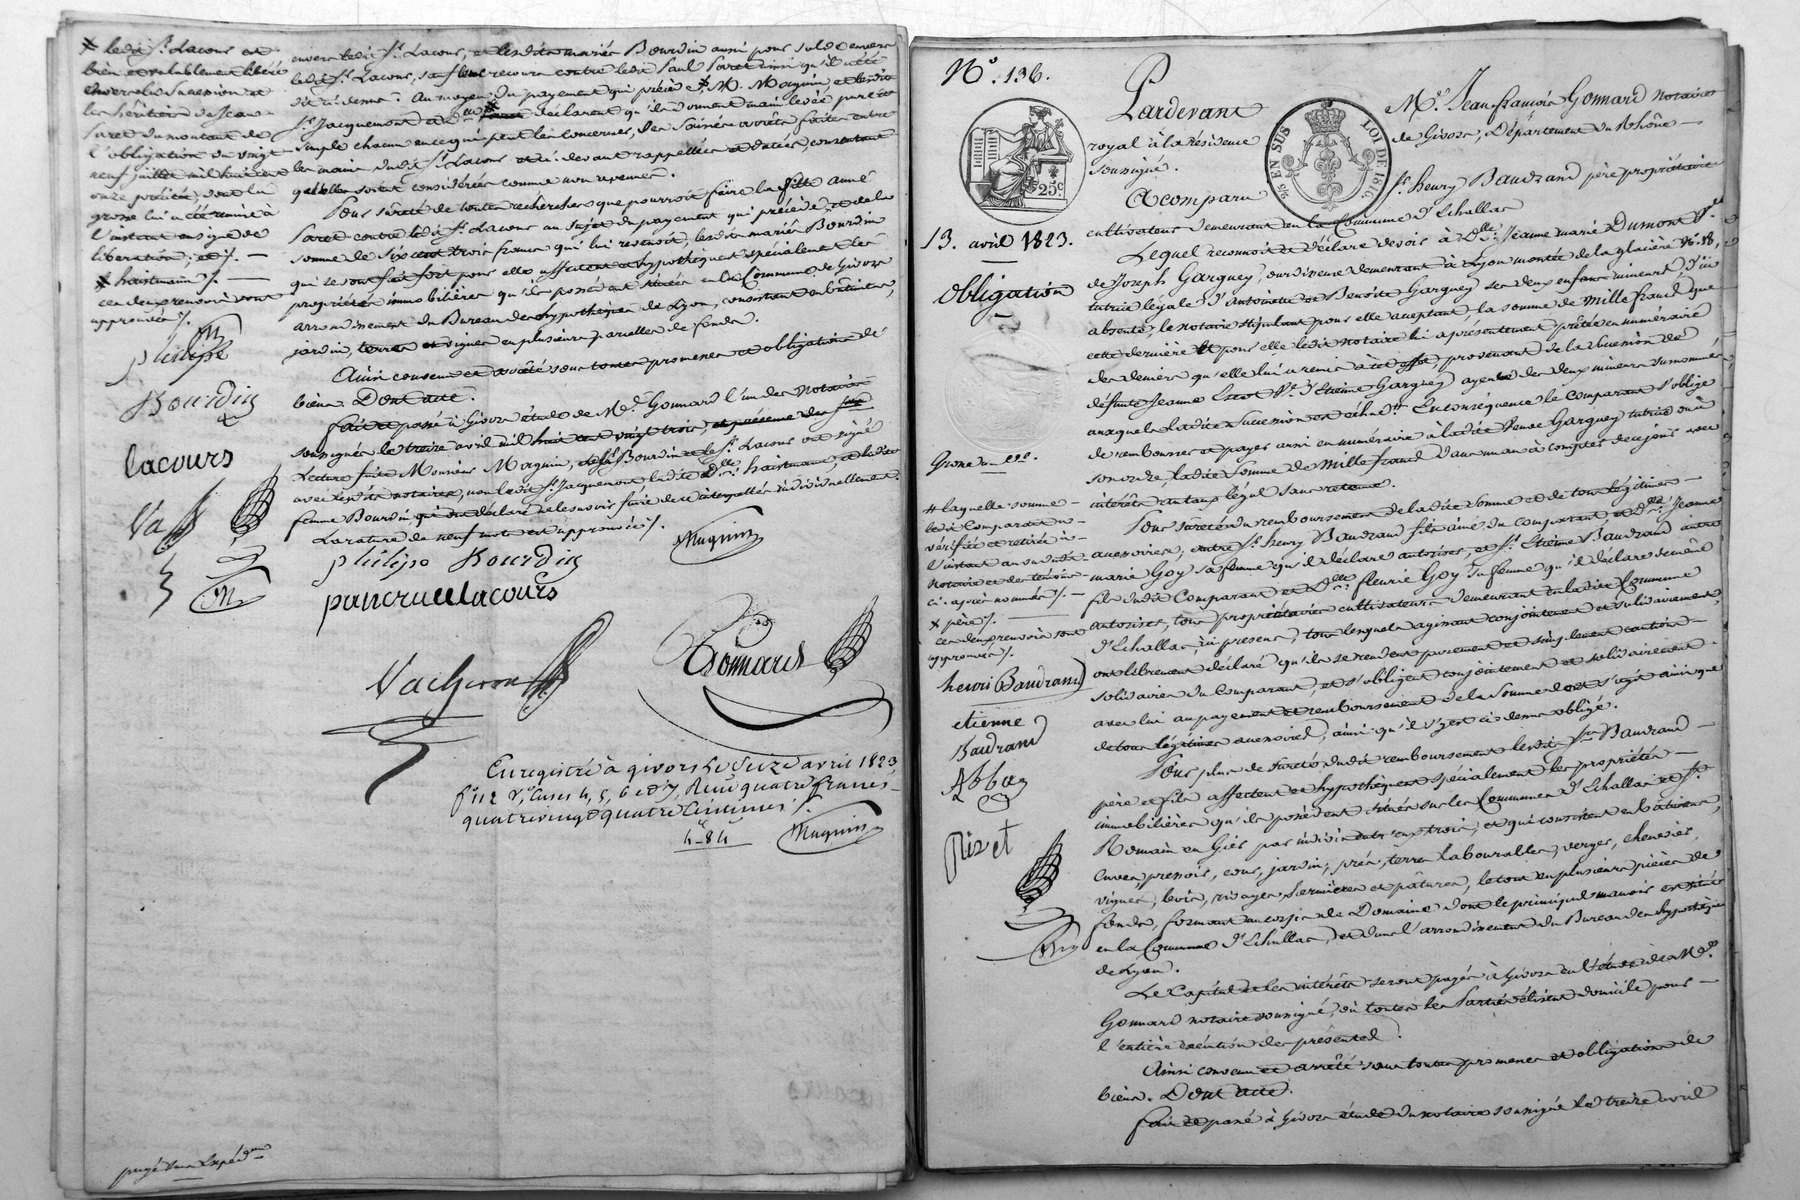 * ledit Sr. Lacours est
bien et valablement libéré
envers la succession et
les héritiers de Jean
Paret du montant de
l'obligation du vingt
neuf juillet mil huit cent
onze précitée, dont la
grosse lui a été remise à
l'instant en signe de
libération, et /. —
* haismain /. —
ces deux renvois sont
approuvés /.
philippe
Bourdin
lacours
Va
envers ledit Sr. Lacours, et lesdits mariés Bourdin aussi pour solde envers
ledit Sr. Lacours, sauf leur recours contre ledit Paul Paret ainsi qu'il a été
dit ci dessus. Au moyen du payement qui précède * M. Moguin, et ledit
Sr. Jacquemont déclarent qu'ils donnent main levée pure et
simple chacun en ce qui peut les concerner, des saisies arrêts faites entre
les mains dudit Sr. Lacours et ci devant rappellées et datées, consentant
qu'elles soient considérées comme non avenues.
Pour sûreté de toutes recherches que pourroit faire la fille ainé
Paret contre ledit Sr. Lacours au sujet du payement qui précède et de la
somme de six cent trois francs qui lui revenoit, lesdits mariés Bourdin
qui se sont fait fort pour elle affectent et hypothèquent spécialement les
propriétés immobilières qu'ils possèdent situées en la Commune de Givors
arrondissement du Bureau des hypothèques de Lyon, consistant en bâtiments,
jardin, terres et vignes en plusieurs parcelles de fonds.
Ainsi convenu et arrêté sous toutes promesses et obligations de
biens. Dont acte.
fait et passé à Givors étude de Me. Gonnard l'un des notaires
soussignés le treize avril mil huit cent vingt trois,
Lecture faite Monsieur Moguin, ledit Bourdin et le Sr. Lacours ont signé
avec lesdits notaires, non ledit Sr. Jacquemont ladite Dlle. haismain, et ladite
femme Bourdin qui ont déclaré ne le savoir faire de ce interpellés individuellement.
La rature de neuf mots est approuvée /.
philipe Bourdin
Muguin
pancrace lacours
Vacheron
Gonnard
Enregistré à givors le seize avril 1823
fo. 112 Vo. Cases 4, 5, 6 et 7, Reçu quatre francs
quatrevingt quatre Centimes /.
4-84
Muguin
payé une expédon
No. 136.
25c
25 EN SUS
LOI DE 1816
13. avril 1823.
Obligation
Grosse une
Pardevant Me. Jean françois Gonnard notaire
royal à la résidence de Givors, Département du Rhône —
soussigné.
A comparu Sr. henry Baudrand père propriétaire
cultivateur demeurant en la Commune d'Echallas
Lequel reconnoit et déclare devoir à Dlle. Jeanne marie Dumont Ve.
de Joseph Garguey, ourdisseuse demeurant à Lyon montée de la glacière No. 18,
tutrice légale d'antoinette et Benoîte Garguey ses deux enfans mineurs, d'ici
absente, le notaire stipulant pour elle acceptant, la somme de Mille francs que
cette dernière et pour elle ledit notaire lui a présentement prêtée en numéraire
des deniers qu'elle lui a remis à cet effet, provenant de la succession de
défunte Jeanne Escot Ve. d'Etienne Garguey ayeule des deux mineurs susnommés
auxquels ladite succession est échue. # En conséquence le Comparant s'oblige
de rembourser et payer aussi en numéraire à ladite Veuve Garguey tutrice ou à
son ordre, ladite somme de Mille francs dans un an à compter de ce jour avec
intérêts au taux légal sans retenue.
# laquelle somme —
ledit Comparant a
vérifiée et retirée à
l'instant au vu dudit
notaire et des témoins
ci-après nommés /. —
* père /. —
ces deux renvois sont
approuvés /.
henri Baudrand
etienne
Baudrand
Abbay
Pizet
Pour sûreté du remboursement de ladite somme et de tous légitimes —
accessoires, outre Sr. henry Baudrand fils ainé du Comparant et Dlle. Jeanne
marie Goy sa femme qu'il déclare autoriser, et Sr. Etienne Baudrand autre
fils dudit Comparant et Dlle. fleurie Goy sa femme qu'il déclare de même
autoriser, tous propriétaires cultivateurs demeurant en ladite Commune
d'Echallas, ici présens, tous lesquels agissant conjointement et solidairement,
ont librement déclaré qu'ils se rendent purement et simplement cautions —
solidaires du Comparant, et s'obligent conjointement et solidairement
avec lui au payement et remboursement de la somme dont s'agit ainsi que
de tous légitimes accessoires, ainsi qu'il s'y est ci-dessus obligé.
Pour plus de sureté dudit remboursement lesdits Srs. Baudrand —
père et fils affectent et hypothèquent spécialement les propriétés —
immobilières qu'ils possèdent situées sur les Communes d'Echallas et St.
Romain en Giers par indivis entr'eux trois, et qui consistent en bâtimens,
Cuves, pressoir, cour, jardin, prés, terres labourables, verger, chenevier,
vignes, bois, rivages, hermières et pâtures, le tout en plusieurs pièces de
fonds, formant un corps de Domaine dont le principal manoir est situé
en la Commune d'Echallas, et dans l'arrondissement du Bureau des hypothèques
de Lyon.
Le Capital et les intérêts seront payés à Givors en l'étude de Me.
Gonnard notaire soussigné, où toutes les Parties élisent domicile pour —
l'entière exécution des présentes.
Ainsi convenu et arrêté sous toutes promesses et obligations de
biens. Dont acte.
fait et passé à Givors étude du notaire soussigné le treize avril